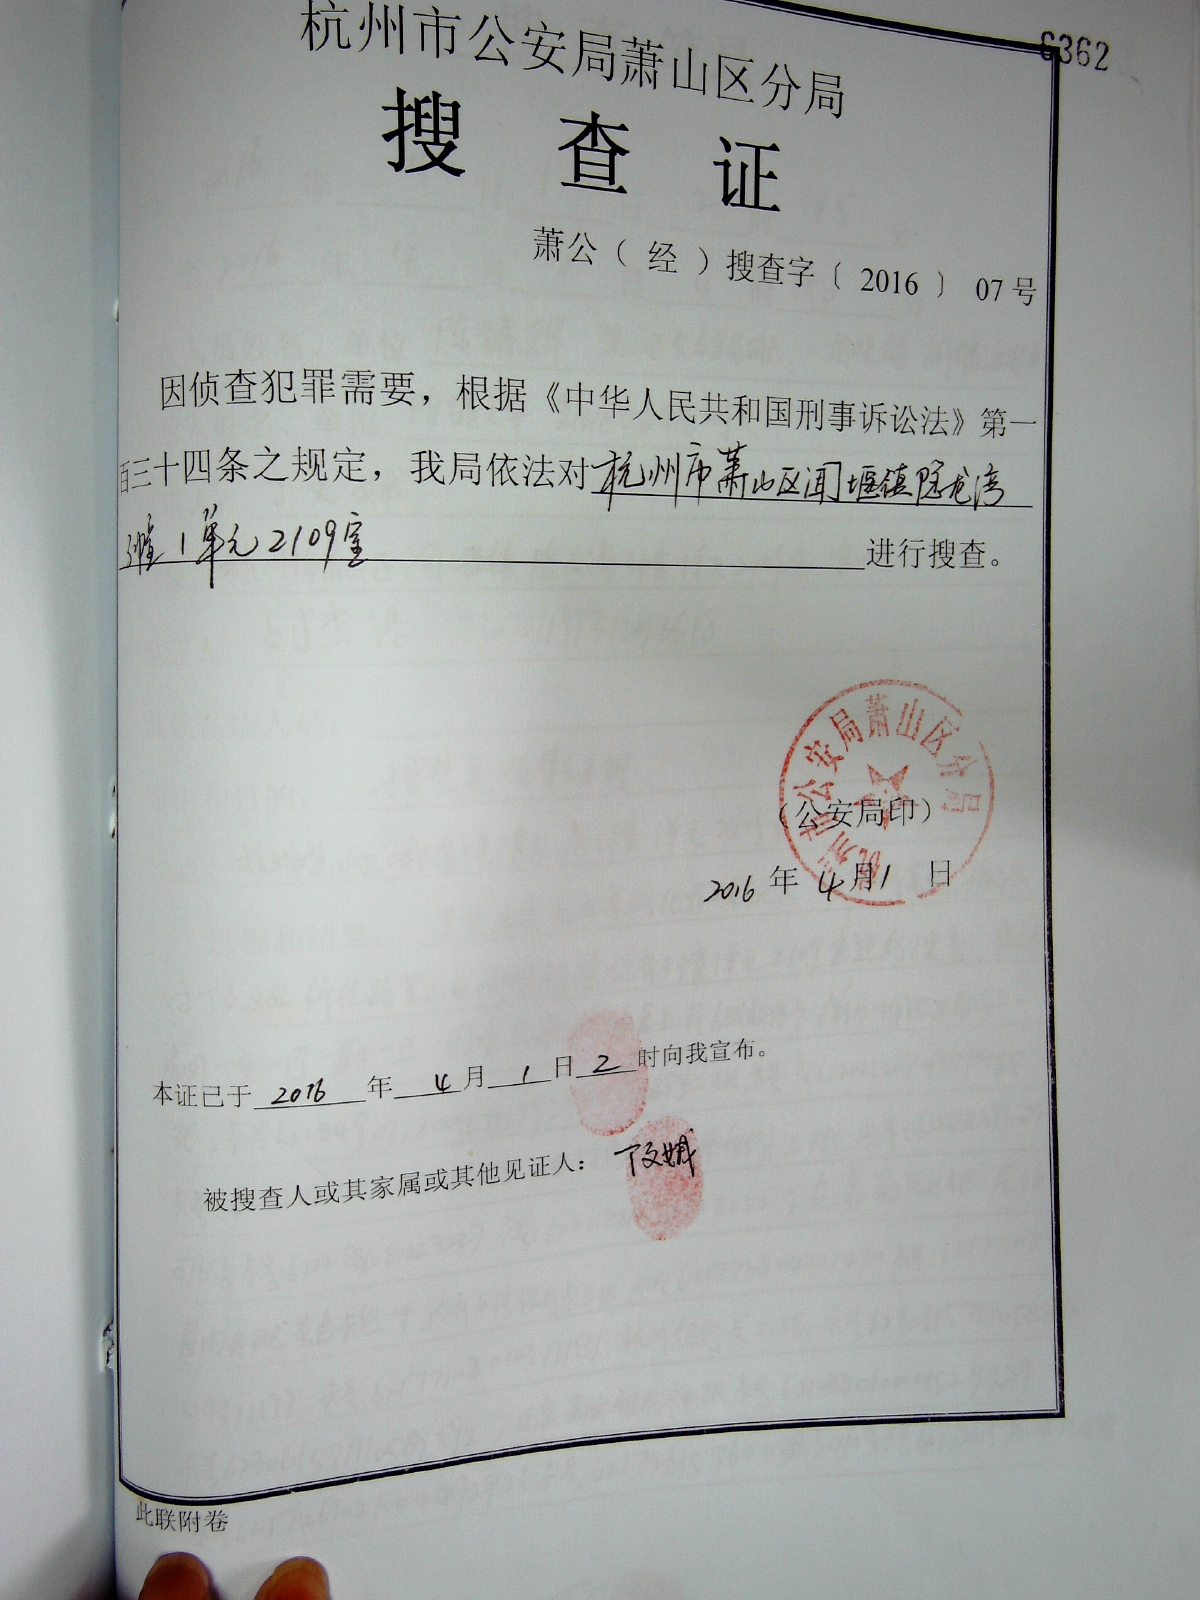 6362
杭州市公安局萧山区分局
搜查证
萧公（经）搜查字〔2016〕07号
因侦查犯罪需要，根据《中华人民共和国刑事诉讼法》第一
百三十四条之规定，我局依法对杭州市萧山区闻堰镇 龙湾
1单元2109室 进行搜查。
杭州市公安局萧山区分局
（公安局印）
2016年4月1日
本证已于2016年4月1日2时向我宣布。
被搜查人或其家属或其他见证人：
此联附卷